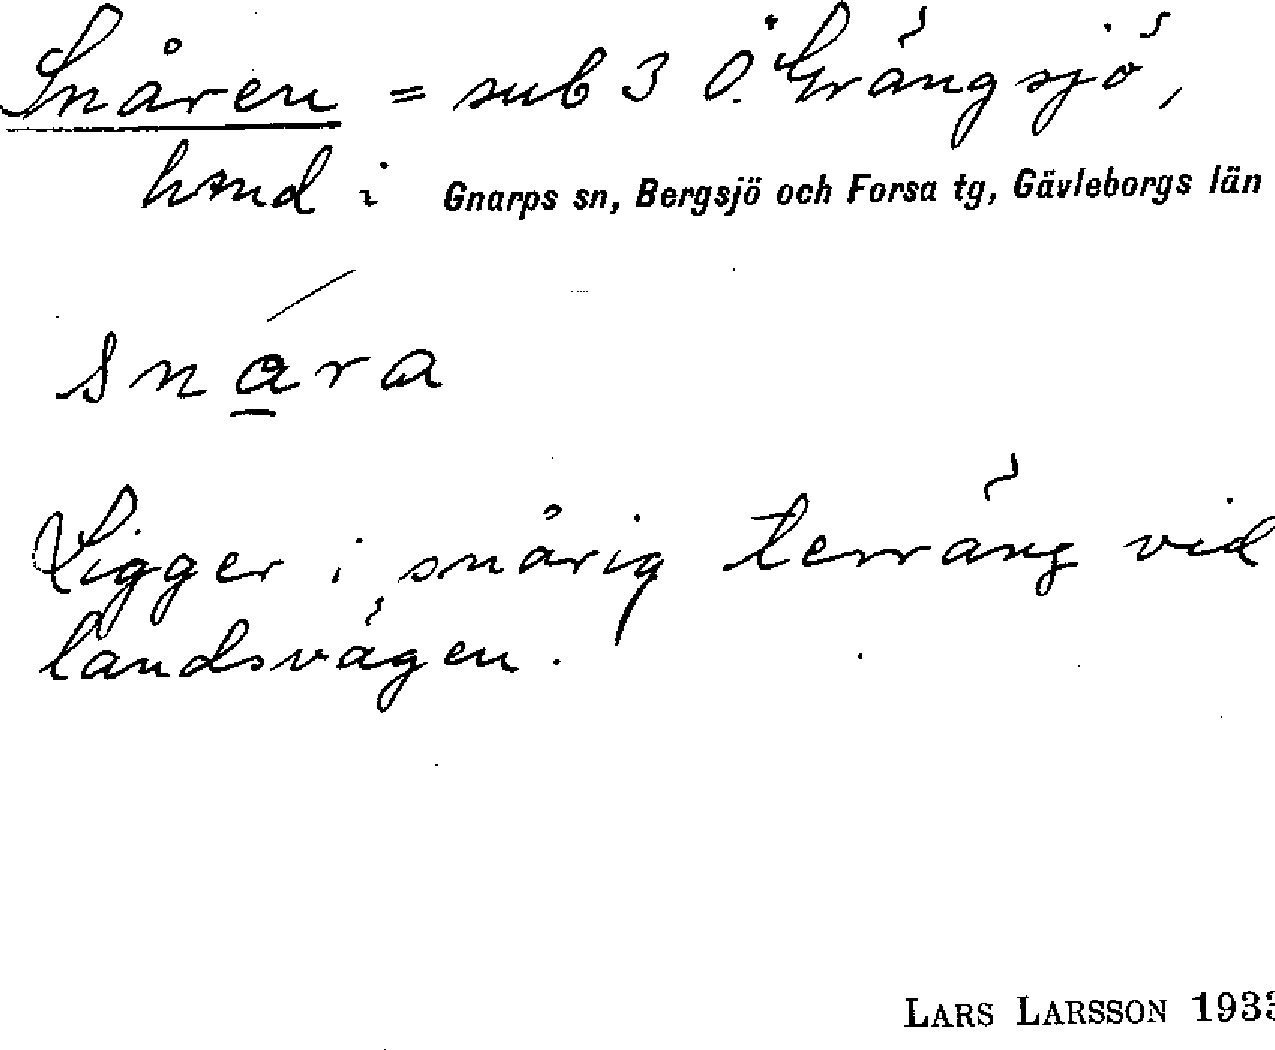 Snåren = sub 3 Ö. Grängsjö,
hmd i Gnarps sn, Bergsjö och Forsa tg, Gävleborgs län
snara
Ligger i snårig terräng vid
landsvägen.
LARS LARSSON 1933